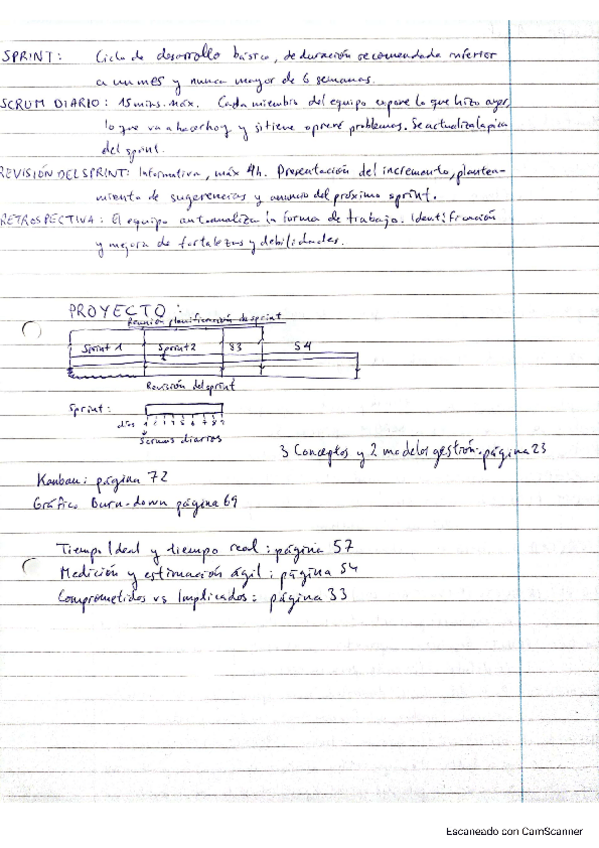 SPRINT: Ciclo de desarrollo básico, de duración recomendada inferior
a un mes y nunca mayor de 6 semanas.
SCRUM DIARIO: 15 mins. máx. Cada miembro del equipo expone lo que hizo ayer,
lo que va a hacer hoy y si tiene o prevé problemas. Se actualiza la pica
del sprint.
REVISIÓN DEL SPRINT: Informativa, máx 4h. Presentación del incremento, plantea-
miento de sugerencias y anuncio del próximo sprint.
RETROSPECTIVA: El equipo autoanaliza la forma de trabajo. Identificación
y mejora de fortalezas y debilidades.
PROYECTO:
Reunión planificación de sprint
Sprint 1 Sprint 2 S3 S4
Revisión del sprint
Sprint:
días 1
Scrums diarios
3 Conceptos y 2 modelos gestión. página 23
Kanban: página 72
Gráfico Burn-down página 69
Tiempo Ideal y tiempo real: página 57
Medición y estimación ágil: página 54
Comprometidos vs Implicados: página 33
Escaneado con CamScanner